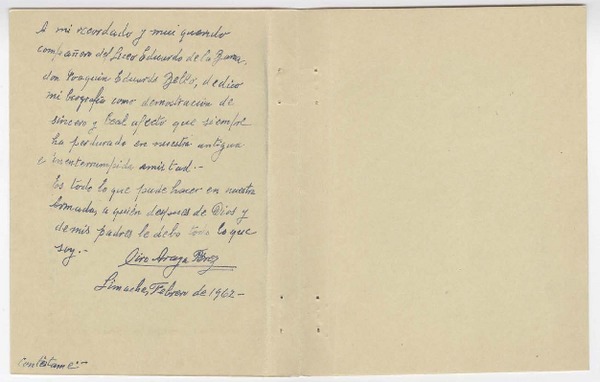 A mi recordado y mui querido
compañero del Liceo Eduardo de la Barra,
don Joaquin Edwards Bello, dedico
mi biografía como demostración de
sincero y leal afecto que siempre
ha perdurado en nuestra antigua
e inenterrumpida amistad.-
Es todo lo que pude hacer en nuestra
Armada, a quién despues de Dios y
de mis padres le debo todo lo que
soy.-
Ciro Araya Pérez
Limache, Febrero de 1962-
Contéstame:-